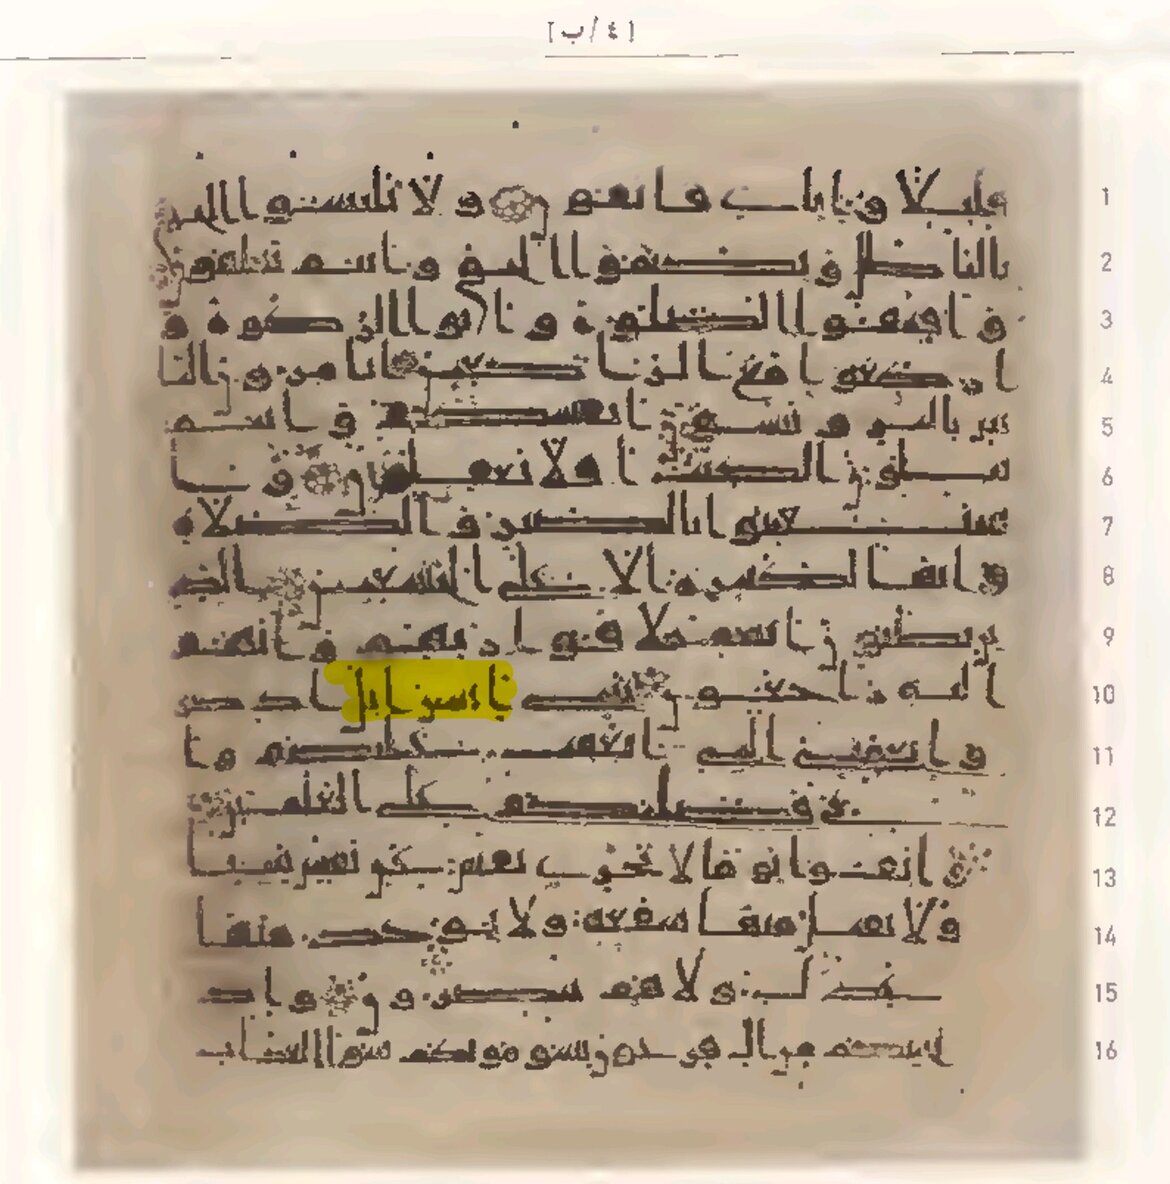 [٤/ب]
قليلا وايـاي فاتقون ولا تلبسوا الحق
بالباطل وتكتموا الحق وانتم تعلمون
واقيموا الصلوة واتوا الزكوة و
اركعوا مع الراكعين اتامرون النا
س بالبر وتنسون انفسكم وانتم
تتلون الكتب افلا تعقلون وا
ستعينوا بالصبر والصلاة
وانها لكبيرة الا على الخشعين الذ
ين يظنون انهم ملاقوا ربهم وانهم
اليه راجعون يا بني اسرايل اذكروا
نعمتي التي انعمت عليكم وا
ني فضلتكم على العلمين
واتقوا يوما لا تجزي نفس عن نفس شيا
ولا يقبل منها شفعة ولا يوخذ منها
عدل ولا هم ينصرون واذ
نجينكم من ال فرعون يسومونكم سوا العذاب
1
2
3
4
5
6
7
8
9
10
11
12
13
14
15
16